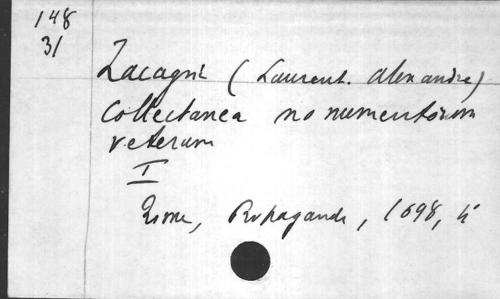 148
31
Zacagni (Laurent. Alexandre)
Collectanea monumentorum
veterum
I
Rome, Propagande, 1698, 4°